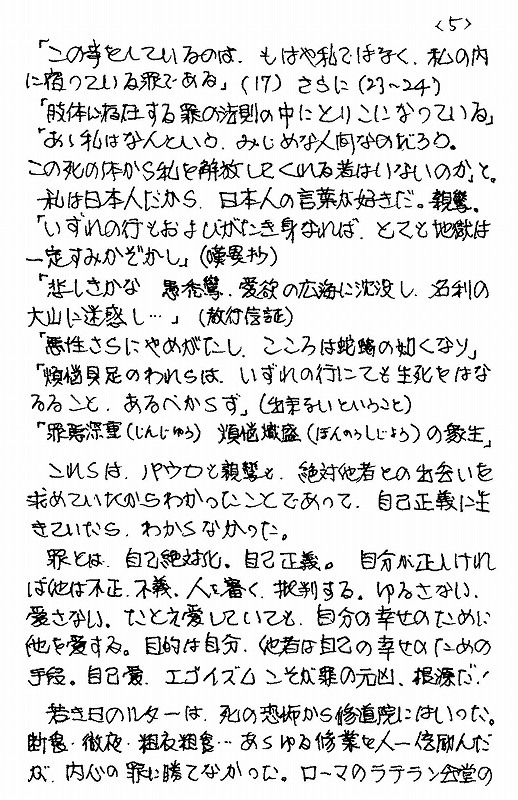 <5>
「この事をしているのは、もはや私ではなく、私の内
に宿っている罪である」(17) さらに(23~24)
「肢体に存在する罪の法則の中にとりこになっている」
「あゝ私はなんという、みじめな人間なのだろう。
この死の体から私を解放してくれる者はいないのか」と。
私は日本人だから、日本人の言葉が好きだ。親鸞。
「いずれの行もおよびがたき身なれば、とても地獄は
一定すみかぞかし」(嘆異抄)
「悲しきかな 愚禿鸞、愛欲の広海に沈没し、名利の
大山に迷惑し…」(教行信証)
「悪性さらにやめがたし、こころは蛇蝎の如くなり」
「煩悩具足のわれらは、いずれの行にても生死をはな
るること、あるべからず」(出来ないということ)
「罪悪深重(じんじゅう) 煩悩熾盛(ぼんのうしじょう)の衆生」
これらは、パウロも親鸞も、絶対他者との出会いを
求めていたからわかったことであって、自己正義に生
きていたら、わからなかった。
罪とは、自己絶対化。自己正義。 自分が正しけれ
ば他は不正、不義、人を審く、批判する。ゆるさない、
愛さない。たとえ愛していても、自分の幸せのために
他を愛する。目的は自分、他者は自己の幸せのための
手段。自己愛、エゴイズムこそが罪の元凶、根源だ!
若き日のルターは、死の恐怖から修道院にはいった。
断食・徹夜・粗衣粗食…あらゆる修業を人一倍励んだ
が、内心の罪に勝てなかった。ローマのラテラン会堂の